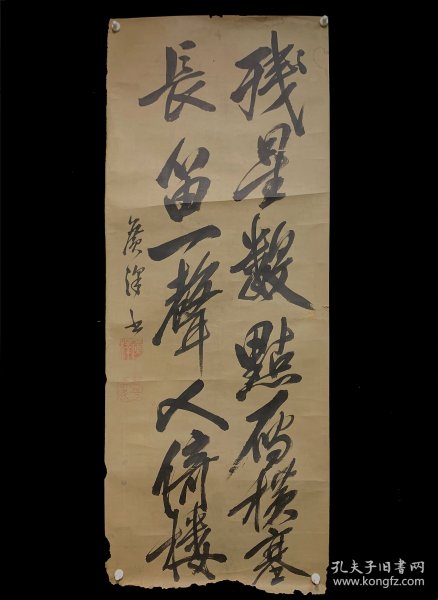 殘星數點雁橫塞
長笛一聲人倚樓
廣澤書
孔夫子旧书网
www.kongfz.com